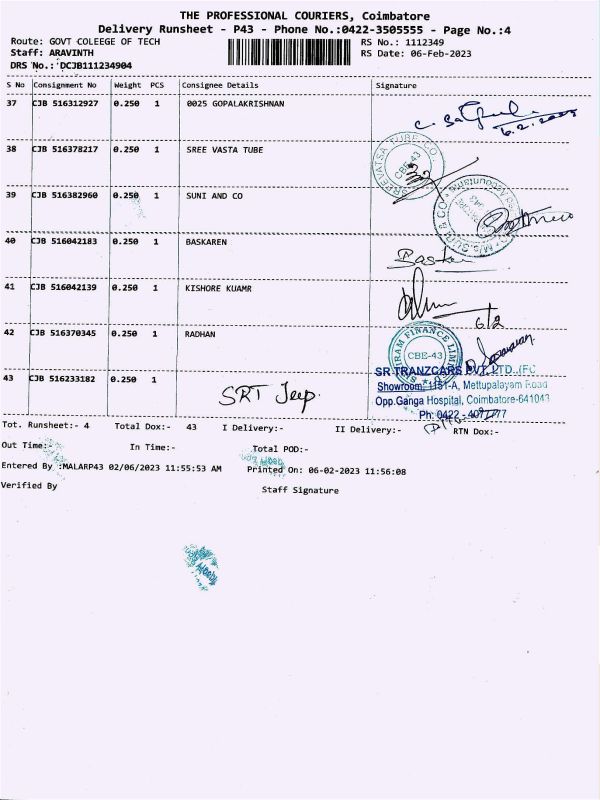 THE PROFESSIONAL COURIERS, Coimbatore
Delivery Runsheet - P43 - Phone No.:0422-3505555 - Page No.:4
Route: GOVT COLEEGE OF TECH RS No.: 1112349
Staff: ARAVINTH RS Date: 06-Feb-2023
DRS No.:'DCJB111234904
S No Consignment No Weight PCS Consignee Details Signature
37 CJB 516312927 0.250 1 0025 GOPALAKRISHNAN
6.2.2023
38 CJB 516378217 0.250 1 SREE VASTA TUBE
SREEVATSA TUBE CO CBE-43
39 CJB 516382960 0.250 1 SUNI AND CO
40 CJB 516042183 0.250 1 BASKAREN
41 CJB 516042139 0.250 1 KISHORE KUAMR
6/2
42 CJB 516370345 0.250 1 RADHAN
CBE-43
43 CJB 516233182 0.250 1 SRT Jeep.
SR TRANZCARS PVT. LTD.,(FC
Showroom: 1151-A, Mettupalayam Road
Opp.Ganga Hospital, Coimbatore-641043
Ph: 0422 -
Tot. Runsheet:- 4 Total Dox:- 43 I Delivery:- II Delivery:- RTN Dox:-
Out Time:- In Time:- Total POD:-
Entered By :MALARP43 02/06/2023 11:55:53 AM Printed On: 06-02-2023 11:56:08
Verified By Staff Signature